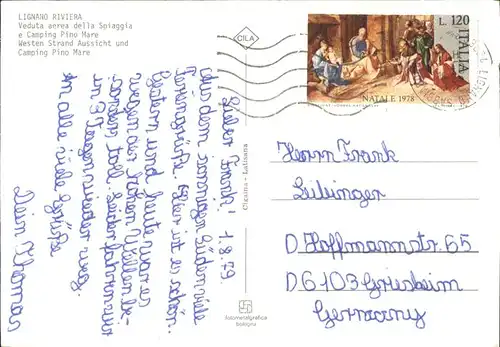 LIGNANO RIVIERA
Veduta aerea della Spiaggia
e Camping Pino Mare
Westen Strand Aussicht und
Camping Pino Mare
CILA
L. 120
ITALIA
NATALE 1978
Cigaina - Latisana
fotometalgrafica
Bologna
1.8.79
Lieber Frank!
Aus dem sonnigen Süden viele
Feriengrüße. Hier ist es schön.
Gestern und heute war es
wegen der hohen Wellen be-
sonders toll. Leider fahren wir
in 3 Tagen wieder weg.
An alle viele Grüße
Dein Thomas
Herrn Frank
D Hoffmannstr. 65
D 6103 Griesheim
Germany